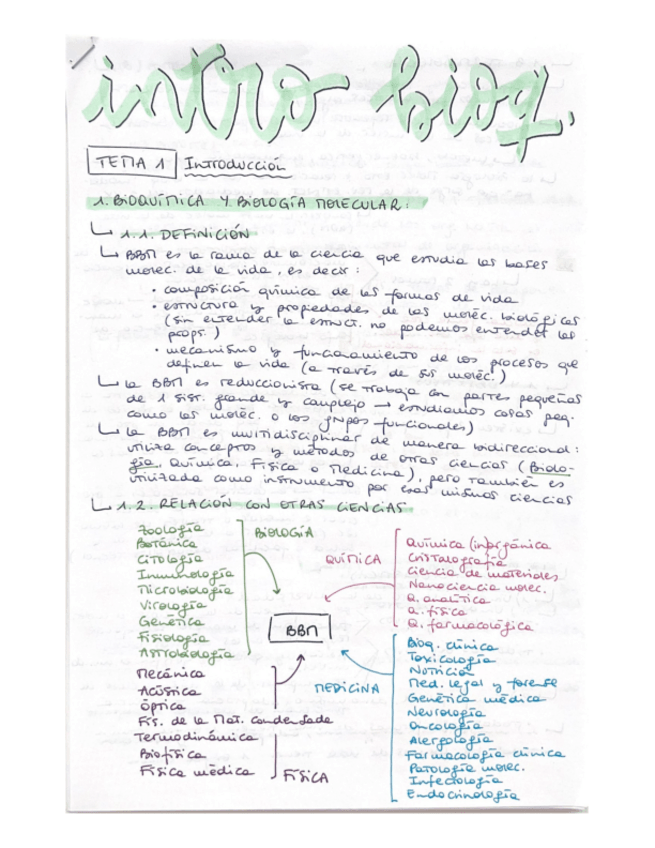 intro bioq.
TEMA 1 Introducción
1. BIOQUÍMICA Y BIOLOGÍA MOLECULAR:
1.1. DEFINICIÓN
BBM es la rama de la ciencia que estudia las bases
molec. de la vida, es decir:
• composición química de las formas de vida
• estructura y propiedades de las moléc. biológicas
(sin entender la estruct. no podemos entender las
props.)
• mecanismo y funcionamiento de los procesos que
definen la vida (a través de sus moléc.)
la BBM es reduccionista (se trabaja con partes pequeñas
de 1 sist. grande y complejo → estudiamos cosas peq.
como las moléc. o los grupos funcionales)
la BBM es multidisciplinar de manera bidireccional:
utiliza conceptos y métodos de otras ciencias (Biolo-
gía, Química, Física o Medicina), pero también es
utilizada como instrumento por esas mismas ciencias
1.2. RELACIÓN CON OTRAS CIENCIAS
Zoología
Botánica
Citología
Inmunología
Microbiología
Virología
Genética
Fisiología
Astrobiología
BIOLOGÍA
QUÍMICA
Química (in)orgánica
Cristalografía
Ciencia de materiales
Nanociencia molec.
Q. analítica
Q. física
Q. farmacológica
BBM
Mecánica
Acústica
Óptica
Fís. de la Mat. Condensada
Termodinámica
Biofísica
Física médica
FÍSICA
MEDICINA
Bioq. clínica
Toxicología
Nutrición
Med. legal y forense
Genética médica
Neurología
Oncología
Alergología
Farmacología clínica
Patología molec.
Infectología
Endocrinología